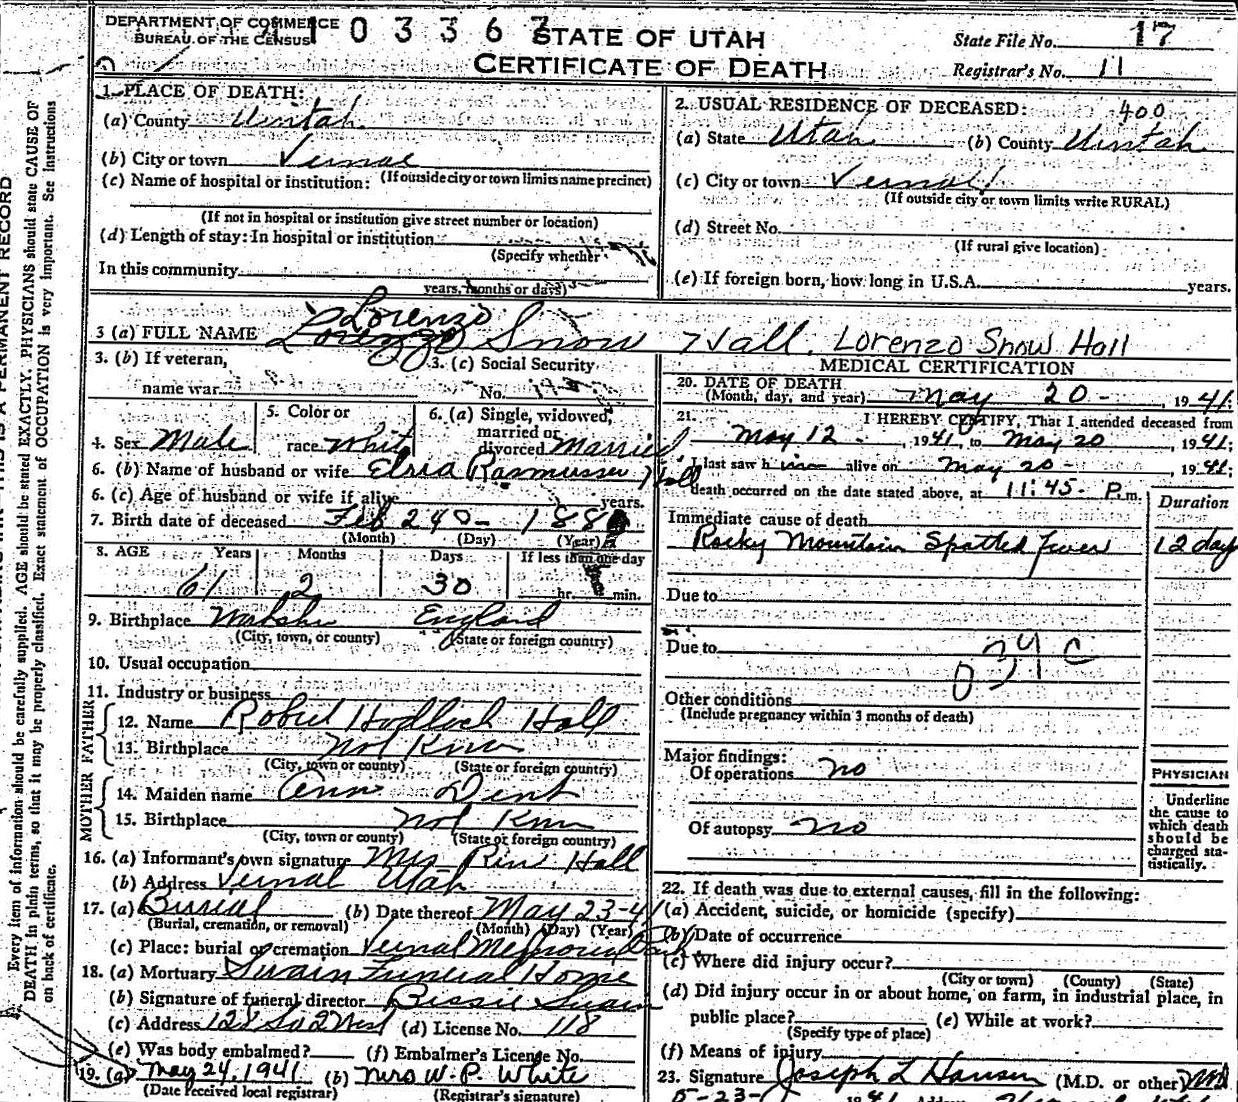 DEPARTMENT OF COMMERCE
BUREAU OF THE CENSUS
1 0 3 3 6 7
STATE OF UTAH
CERTIFICATE OF DEATH
State File No. 17
Registrar's No. 11
1. PLACE OF DEATH:
(a) County Uintah
(b) City or town Vernal
(If outside city or town limits name precinct)
(c) Name of hospital or institution:
(If not in hospital or institution give street number or location)
(d) Length of stay: In hospital or institution
(Specify whether
In this community
years, months or days)
2. USUAL RESIDENCE OF DECEASED: 400
(a) State Utah (b) County Uintah
(c) City or town Vernal
(If outside city or town limits write RURAL)
(d) Street No.
(If rural give location)
(e) If foreign born, how long in U.S.A. years.
Lorenzo
3 (a) FULL NAME Lorenzo Snow Hall. Lorenzo Snow Hall
3. (b) If veteran,
name war
3. (c) Social Security
No.
4. Sex Male
5. Color or
race White
6. (a) Single, widowed,
married or
divorced Married
6. (b) Name of husband or wife Elsia Rasmussen Hall
6. (c) Age of husband or wife if alive years.
7. Birth date of deceased Feb 20 - 188
(Month) (Day) (Year)
8. AGE Years Months Days If less than one day
61 2 30 hr. min.
9. Birthplace England
(City, town, or county) (State or foreign country)
10. Usual occupation
11. Industry or business
FATHER
12. Name Robert Hall
13. Birthplace Not Know
(City, town or county) (State or foreign country)
MOTHER
14. Maiden name Ann Dent
15. Birthplace Not Know
(City, town, or county) (State or foreign country)
16. (a) Informant's own signature Mrs Hall
(b) Address Vernal Utah
17. (a) Burial (b) Date thereof May 23-41
(Burial, cremation, or removal) (Month) (Day) (Year)
(c) Place: burial or cremation Vernal Memorial Park
18. (a) Mortuary Swain Funeral Home
(b) Signature of funeral director Bessie Swain
(c) Address 128 So 2 West (d) License No. 118
(e) Was body embalmed? (f) Embalmer's License No.
19. (a) May 24, 1941 (b) Mrs W. P. White
(Date received local registrar) (Registrar's signature)
MEDICAL CERTIFICATION
20. DATE OF DEATH
(Month, day, and year) May 20 - , 1941;
21. I HEREBY CERTIFY, That I attended deceased from
May 12 - , 1941, to May 20 , 1941;
I last saw him alive on May 20 - , 1941;
death occurred on the date stated above, at 11:45 P.m.
Duration
Immediate cause of death
Rocky Mountain Spotted fever 12 days
Due to
Due to
039c
Other conditions
(Include pregnancy within 3 months of death)
Major findings:
Of operations no
Of autopsy no
PHYSICIAN
Underline
the cause to
which death
should be
charged sta-
tistically.
22. If death was due to external causes, fill in the following:
(a) Accident, suicide, or homicide (specify)
(b) Date of occurrence
(c) Where did injury occur?
(City or town) (County) (State)
(d) Did injury occur in or about home, on farm, in industrial place, in
public place? (e) While at work?
(Specify type of place)
(f) Means of injury
23. Signature Joseph L Hansen (M.D. or other) MD
5-23-
Every item of information should be carefully supplied. AGE should be stated EXACTLY. PHYSICIANS should state CAUSE OF
DEATH in plain terms, so that it may be properly classified. Exact statement of OCCUPATION is very important. See Instructions
on back of certificate.
IS A PERMANENT RECORD